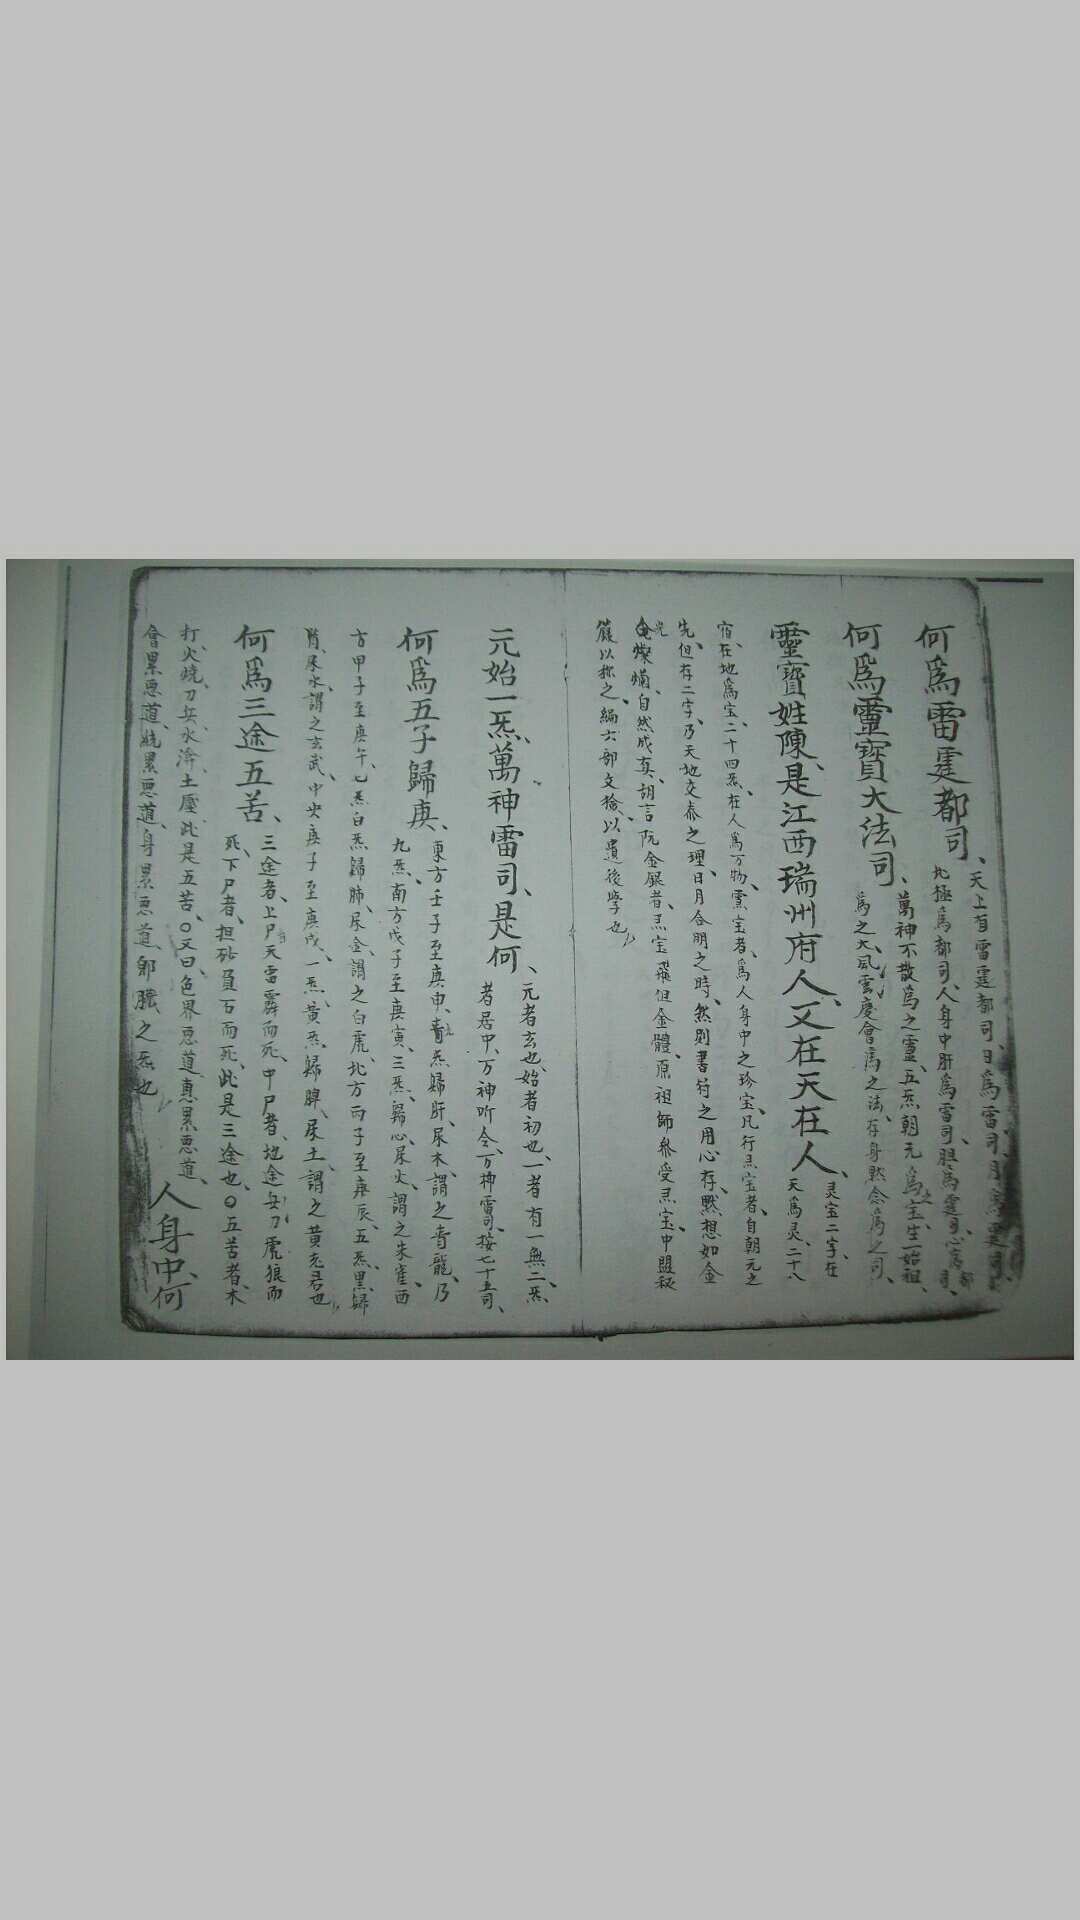 何爲雷霆都司、
天上有雷霆都司、日爲雷司、月爲霆司、
北極爲都司、人身中肝爲雷司、胆爲霆司、心爲都司、
何爲靈寶大法司、
萬神不散爲之靈、五炁朝元爲之宝、生一始祖、
爲之大、風雲慶會爲之法、存身默念爲之司、
靈寶姓陳、是江西瑞州府人、又在天在人、
灵宝二字、在
天爲灵、二十八
宿、在地爲宝、二十四炁、在人爲万物、灵宝者、爲人身中之珍宝、凡行灵宝者、自朝元之
先、但存二字、乃天地交泰之理、日月合明之時、然則書符之用心存、默想如金
光燦爛、自然成真、胡言阮金銀者、灵宝飛但金體、原祖師參受灵宝、中盟秘
籙以称之、編士部文檢、以遺後學也
元始一炁、萬神雷司、是何、
元者玄也、始者初也、一者有一無二、炁
者居中、万神听令、万神雷司、按七十五司、
何爲五子歸庚、
東方壬子至庚申、青九炁歸肝、尿木、謂之青龍、乃
九炁、南方戊子至庚寅、三炁、歸心、尿火、謂之朱雀、西
方甲子至庚午、七炁白炁歸肺、尿金、謂之白虎、北方丙子至庚辰、五炁、黑歸
腎、尿水、謂之玄武、中央庚子至庚戌、一炁、黃炁、歸脾、尿土、謂之黄老君也
何爲三途五苦、
三途者、上尸者天雷霹而死、中尸者、地途兵刀虎狼而
死、下尸者、担砂負石而死、此是三途也、〇五苦者、木
打、火燒、刀兵、水渰、土壓、此是五苦、〇又曰、色界惡道、真累惡道、
會累惡道、統累惡道、身累惡道、即臟之炁也
人身中、何